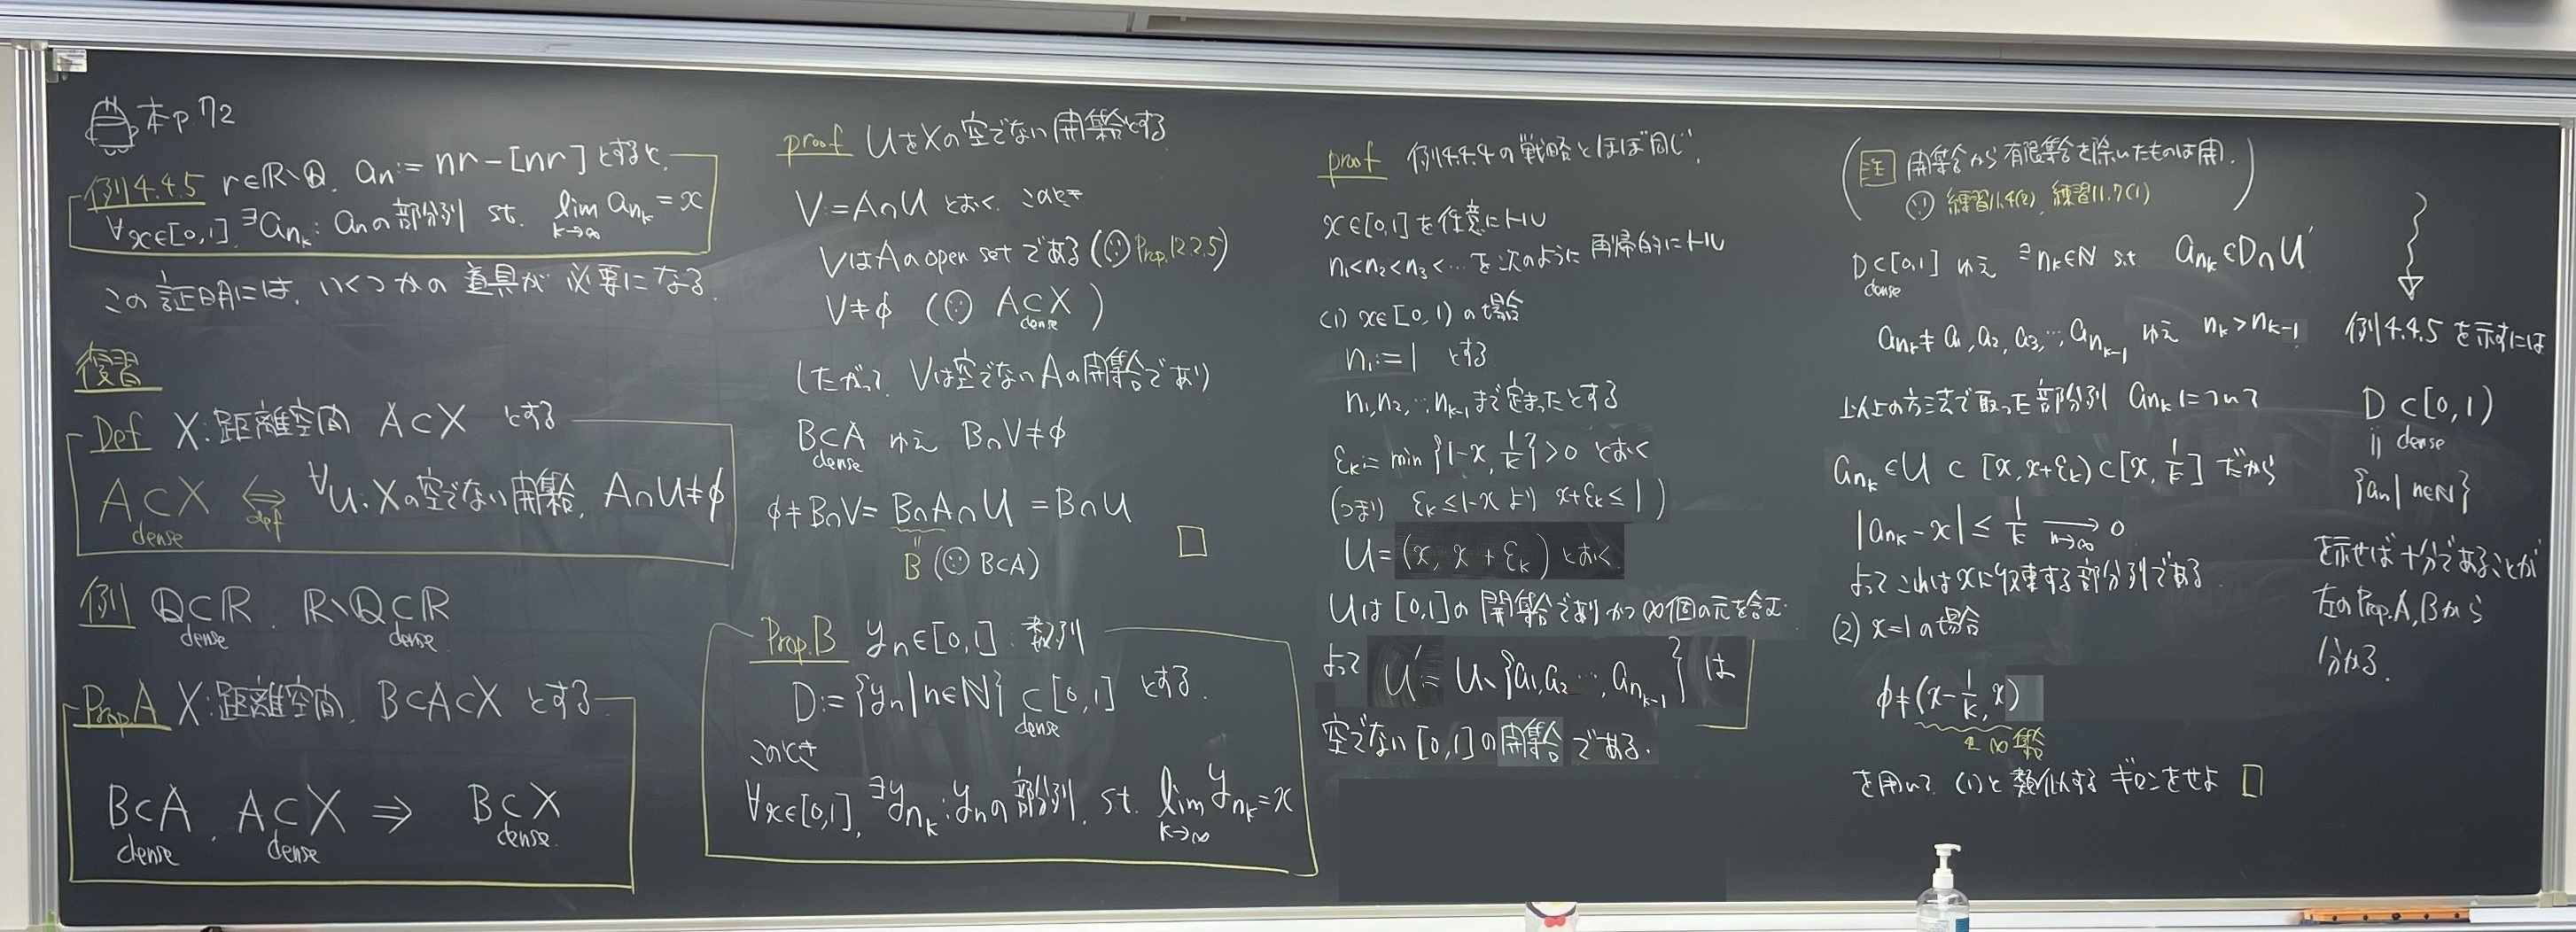 本p.72
例4.4.5 r∈ℝ∖ℚ. an := nr − [nr] とすると、
∀x∈[0,1], ∃a_{n_k}: anの部分列 st. lim_{k→∞} a_{n_k} = x
この証明には、いくつかの道具が必要になる.
復習
Def X:距離空間 A⊂X とする
A⊂X ⇔ ∀U:Xの空でない開集合, A∩U≠φ
dense def
例 ℚ⊂ℝ, ℝ∖ℚ⊂ℝ
dense dense
Prop.A X:距離空間, B⊂A⊂X とする
B⊂A, A⊂X ⇒ B⊂X
dense dense dense
proof UをXの空でない開集合とする
V:=A∩U とおく、このとき
VはAのopen setである(∵ Prop.12.2.5)
V≠φ (∵ A⊂X)
dense
したがって、Vは空でないAの開集合であり
B⊂A ゆえ B∩V≠φ
dense
φ≠B∩V= B∩A∩U = B∩U □
=
B (∵ B⊂A)
Prop.B yn∈[0,1]: 数列
D:={yn|n∈ℕ}⊂[0,1] とする.
dense
このとき
∀x∈[0,1], ∃y_{n_k}:ynの部分列, st. lim_{k→∞} y_{n_k}=x
proof 例4.4.4の戦略とほぼ同じ.
x∈[0,1]を任意にトル
n1<n2<n3<…を次のように再帰的にトル
(1) x∈[0,1)の場合
n1:=1 とする
n1,n2,…,n_{k-1}まで定まったとする
εk:= min{1−x, 1/k}>0 とおく
(つまり εk≤1−x より x+εk≤1)
U= (x, x+εk) とおく
Uは[0,1]の開集合でありかつ∞個の元を含む.
よって U′= U∖{a1,a2…,a_{n_{k-1}}} は
空でない[0,1]の開集合である.
(註 開集合から有限集合を除いたものは開.
∵ 練習11.4(2), 練習11.7(1))
D⊂[0,1] ゆえ ∃nk∈ℕ s.t a_{n_k}∈D∩U′
dense
a_{n_k}≠a1,a2,a3,…,a_{n_{k-1}} ゆえ nk>n_{k-1}
以上の方法で取った部分列 a_{n_k}について
a_{n_k}∈U⊂[x,x+εk)⊂[x,1/k] だから
|a_{n_k}−x|≤1/k →_{n→∞} 0
よってこれはxに収束する部分列である
(2) x=1の場合
φ≠(x−1/k, x)
∞集
を用いて、(1)と類似するギロンをせよ □
例4.4.5を示すには
D⊂[0,1)
|| dense
{an|n∈ℕ}
を示せば十分であることが
左のProp.A,Bから
分かる.